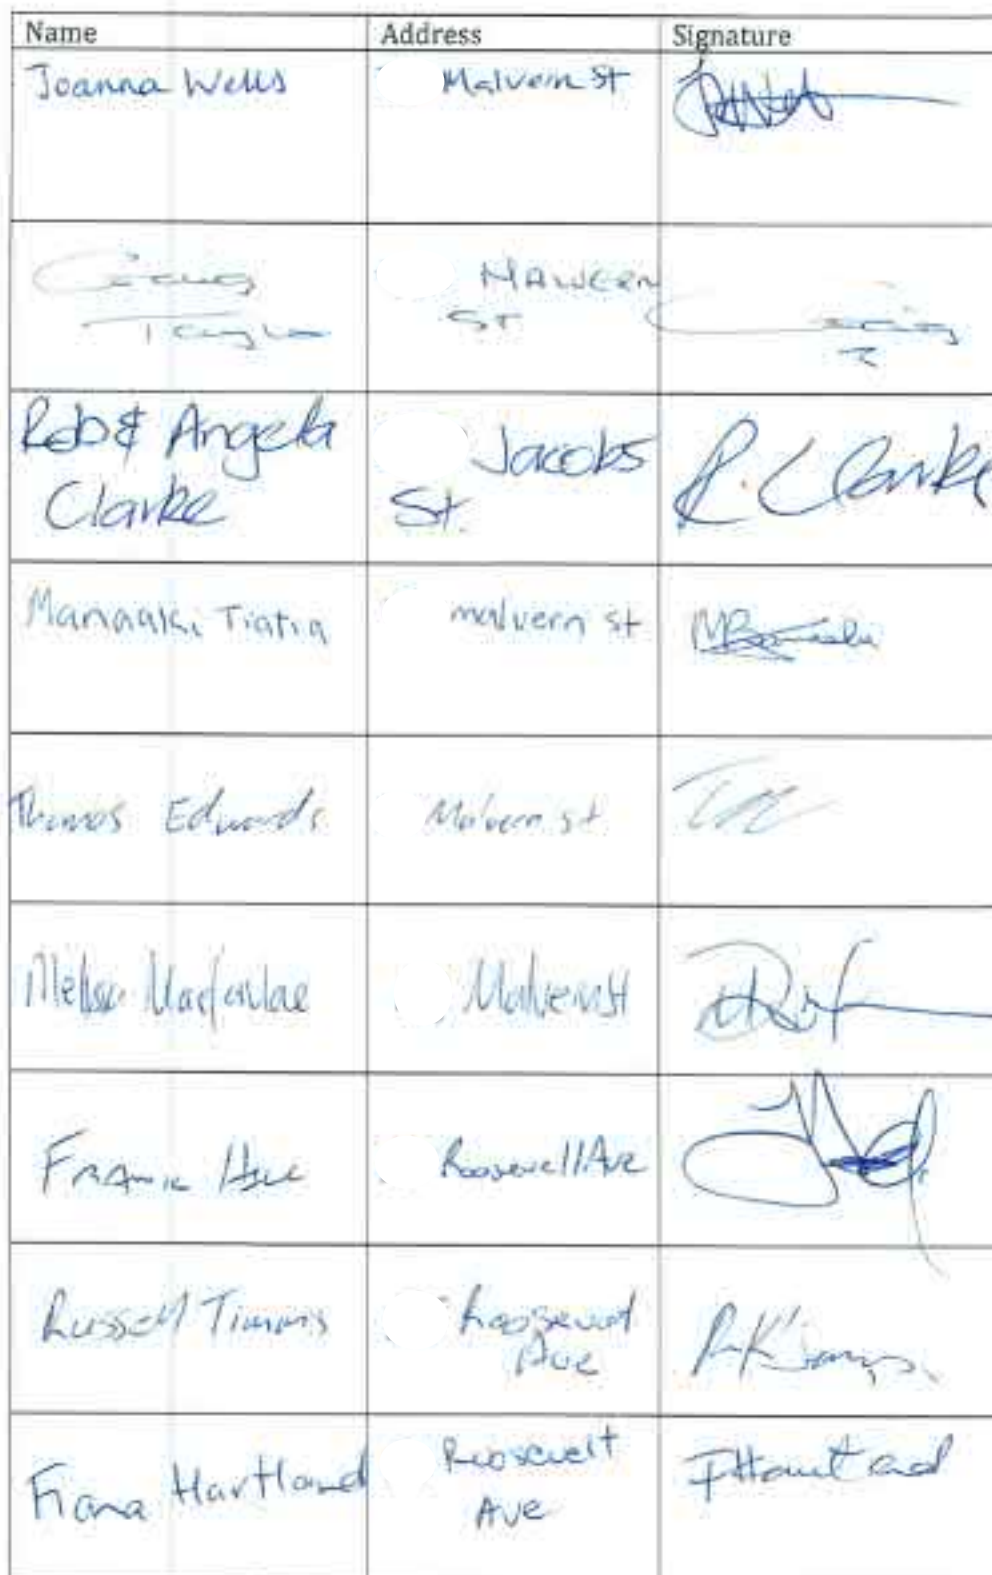 Name Address Signature
Joanna Wells Malvern St
Craig Malvern
Taylor St
Rob & Angela Jacobs R. Clarke
Clarke St.
Manaaki Tiatia malvern st
Thomas Edwards Malvern st
Melissa Macfarlane Malvern St
Roosevelt Ave
Russell Timmis Roosevelt
Ave
Fiona Hartland Roosevelt FHartland
Ave